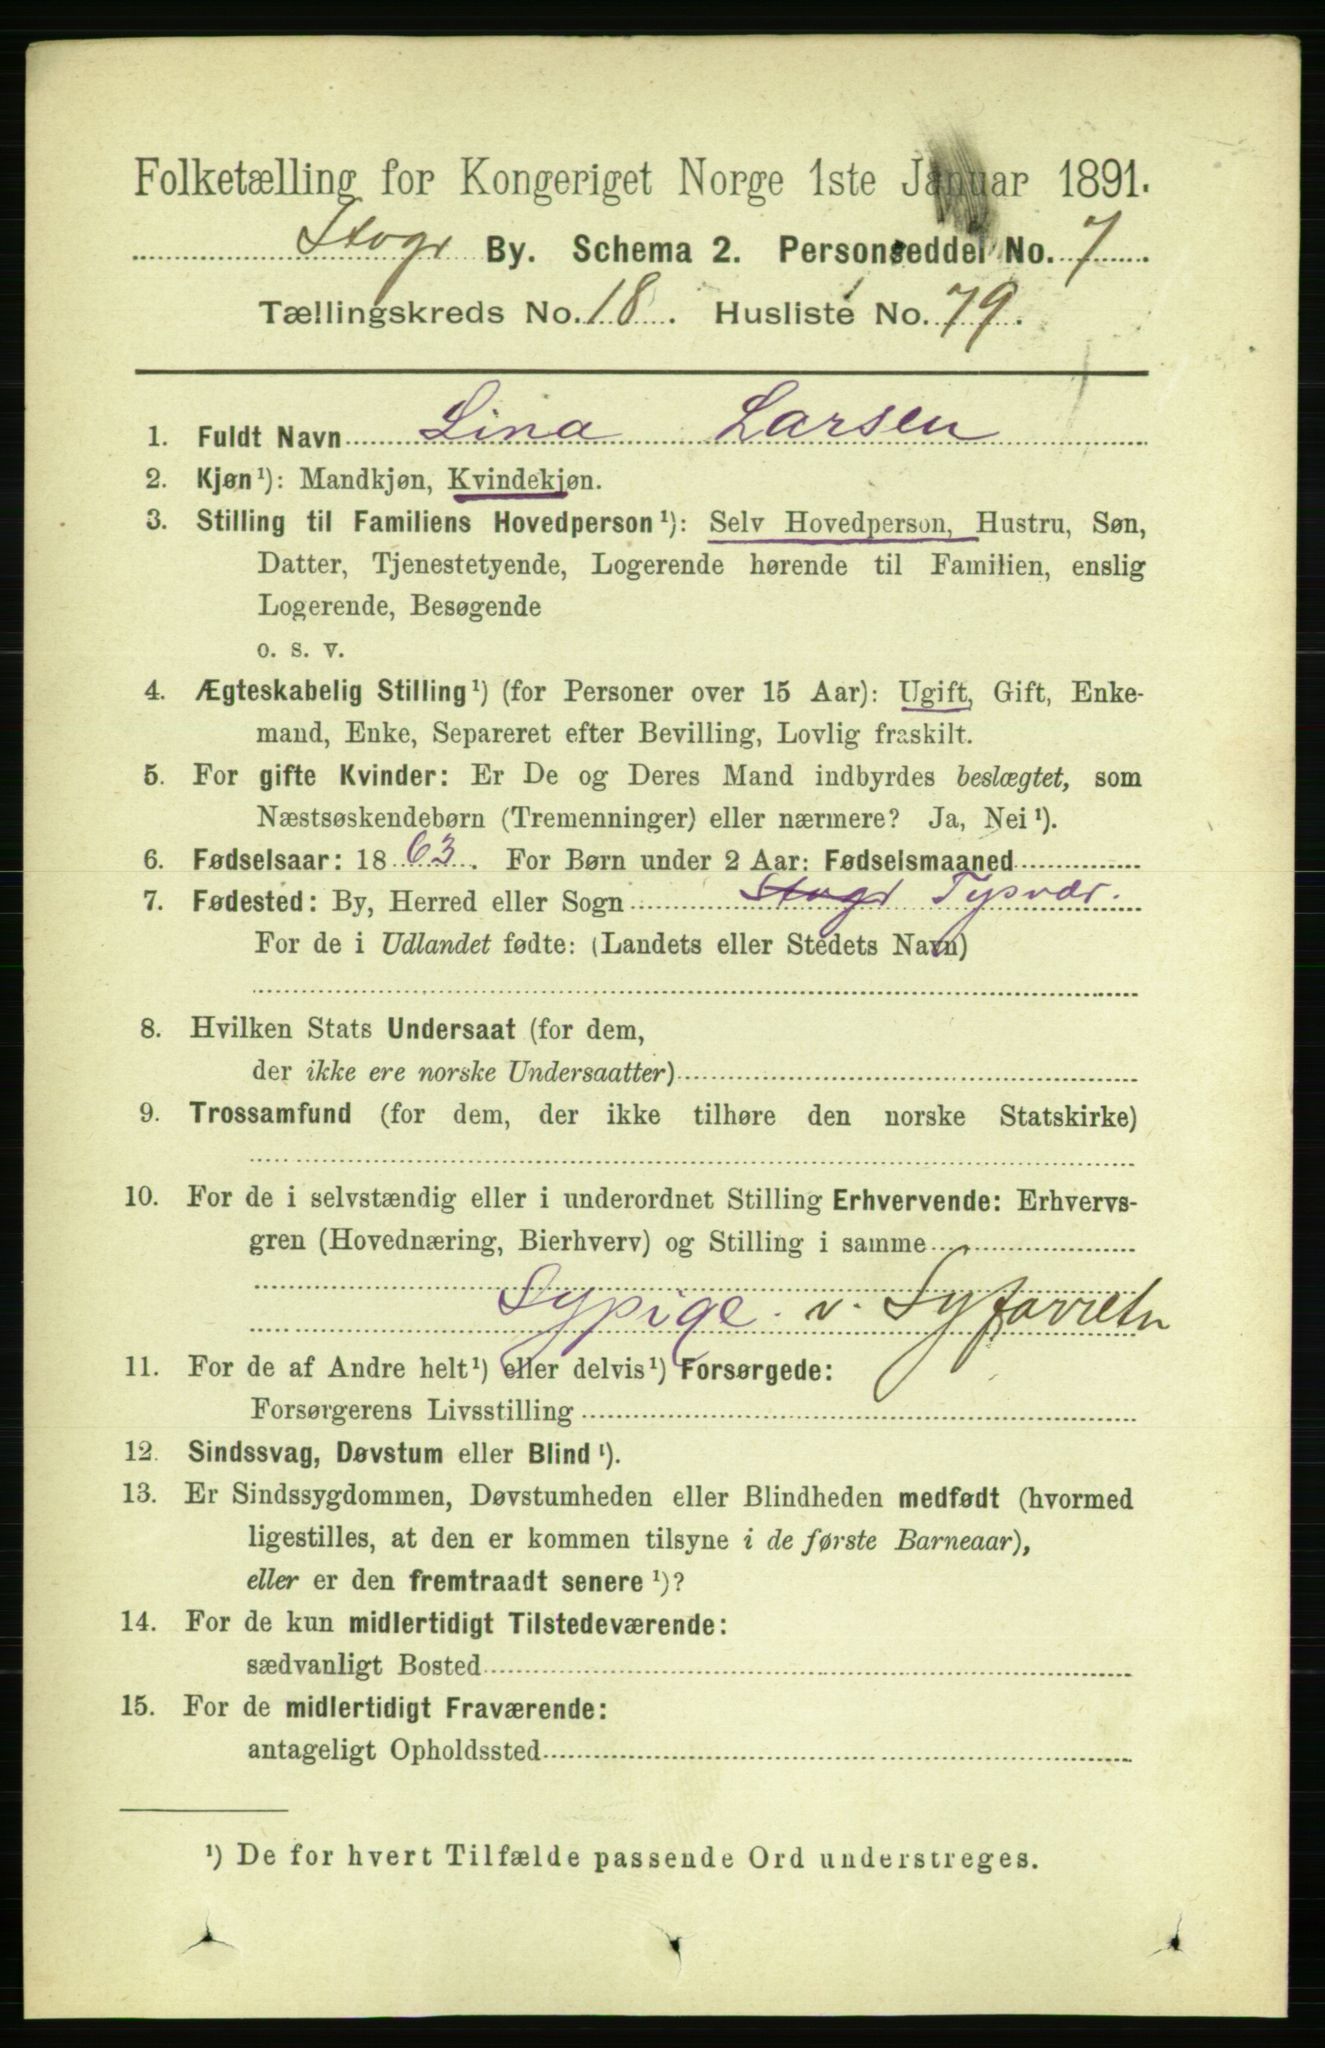 Folketælling for Kongeriget Norge 1ste Januar 1891.
Stvgr By. Schema 2. Personseddel No. 7
Tællingskreds No. 18. Husliste No. 79.
1. Fuldt Navn Lina Larsen
2. Kjøn¹): Mandkjøn, Kvindekjøn.
3. Stilling til Familiens Hovedperson¹): Selv Hovedperson, Hustru, Søn,
Datter, Tjenestetyende, Logerende hørende til Familien, enslig
Logerende, Besøgende
o. s. v.
4. Ægteskabelig Stilling¹) (for Personer over 15 Aar): Ugift, Gift, Enke-
mand, Enke, Separeret efter Bevilling, Lovlig fraskilt.
5. For gifte Kvinder: Er De og Deres Mand indbyrdes beslægtet, som
Næstsøskendebørn (Tremenninger) eller nærmere? Ja, Nei¹).
6. Fødselsaar: 1863. For Børn under 2 Aar: Fødselsmaaned
7. Fødested: By, Herred eller Sogn Stvgr Tysvær.
For de i Udlandet fødte: (Landets eller Stedets Navn)
8. Hvilken Stats Undersaat (for dem,
der ikke ere norske Undersaatter)
9. Trossamfund (for dem, der ikke tilhøre den norske Statskirke)
10. For de i selvstændig eller i underordnet Stilling Erhvervende: Erhvervs-
gren (Hovednæring, Bierhverv) og Stilling i samme
Sypige v. Syforretn
11. For de af Andre helt¹) eller delvis¹) Forsørgede:
Forsørgerens Livsstilling
12. Sindssvag, Døvstum eller Blind¹).
13. Er Sindssygdommen, Døvstumheden eller Blindheden medfødt (hvormed
ligestilles, at den er kommen tilsyne i de første Barneaar),
eller er den fremtraadt senere¹)?
14. For de kun midlertidigt Tilstedeværende:
sædvanligt Bosted
15. For de midlertidigt Fraværende:
antageligt Opholdssted
¹) De for hvert Tilfælde passende Ord understreges.